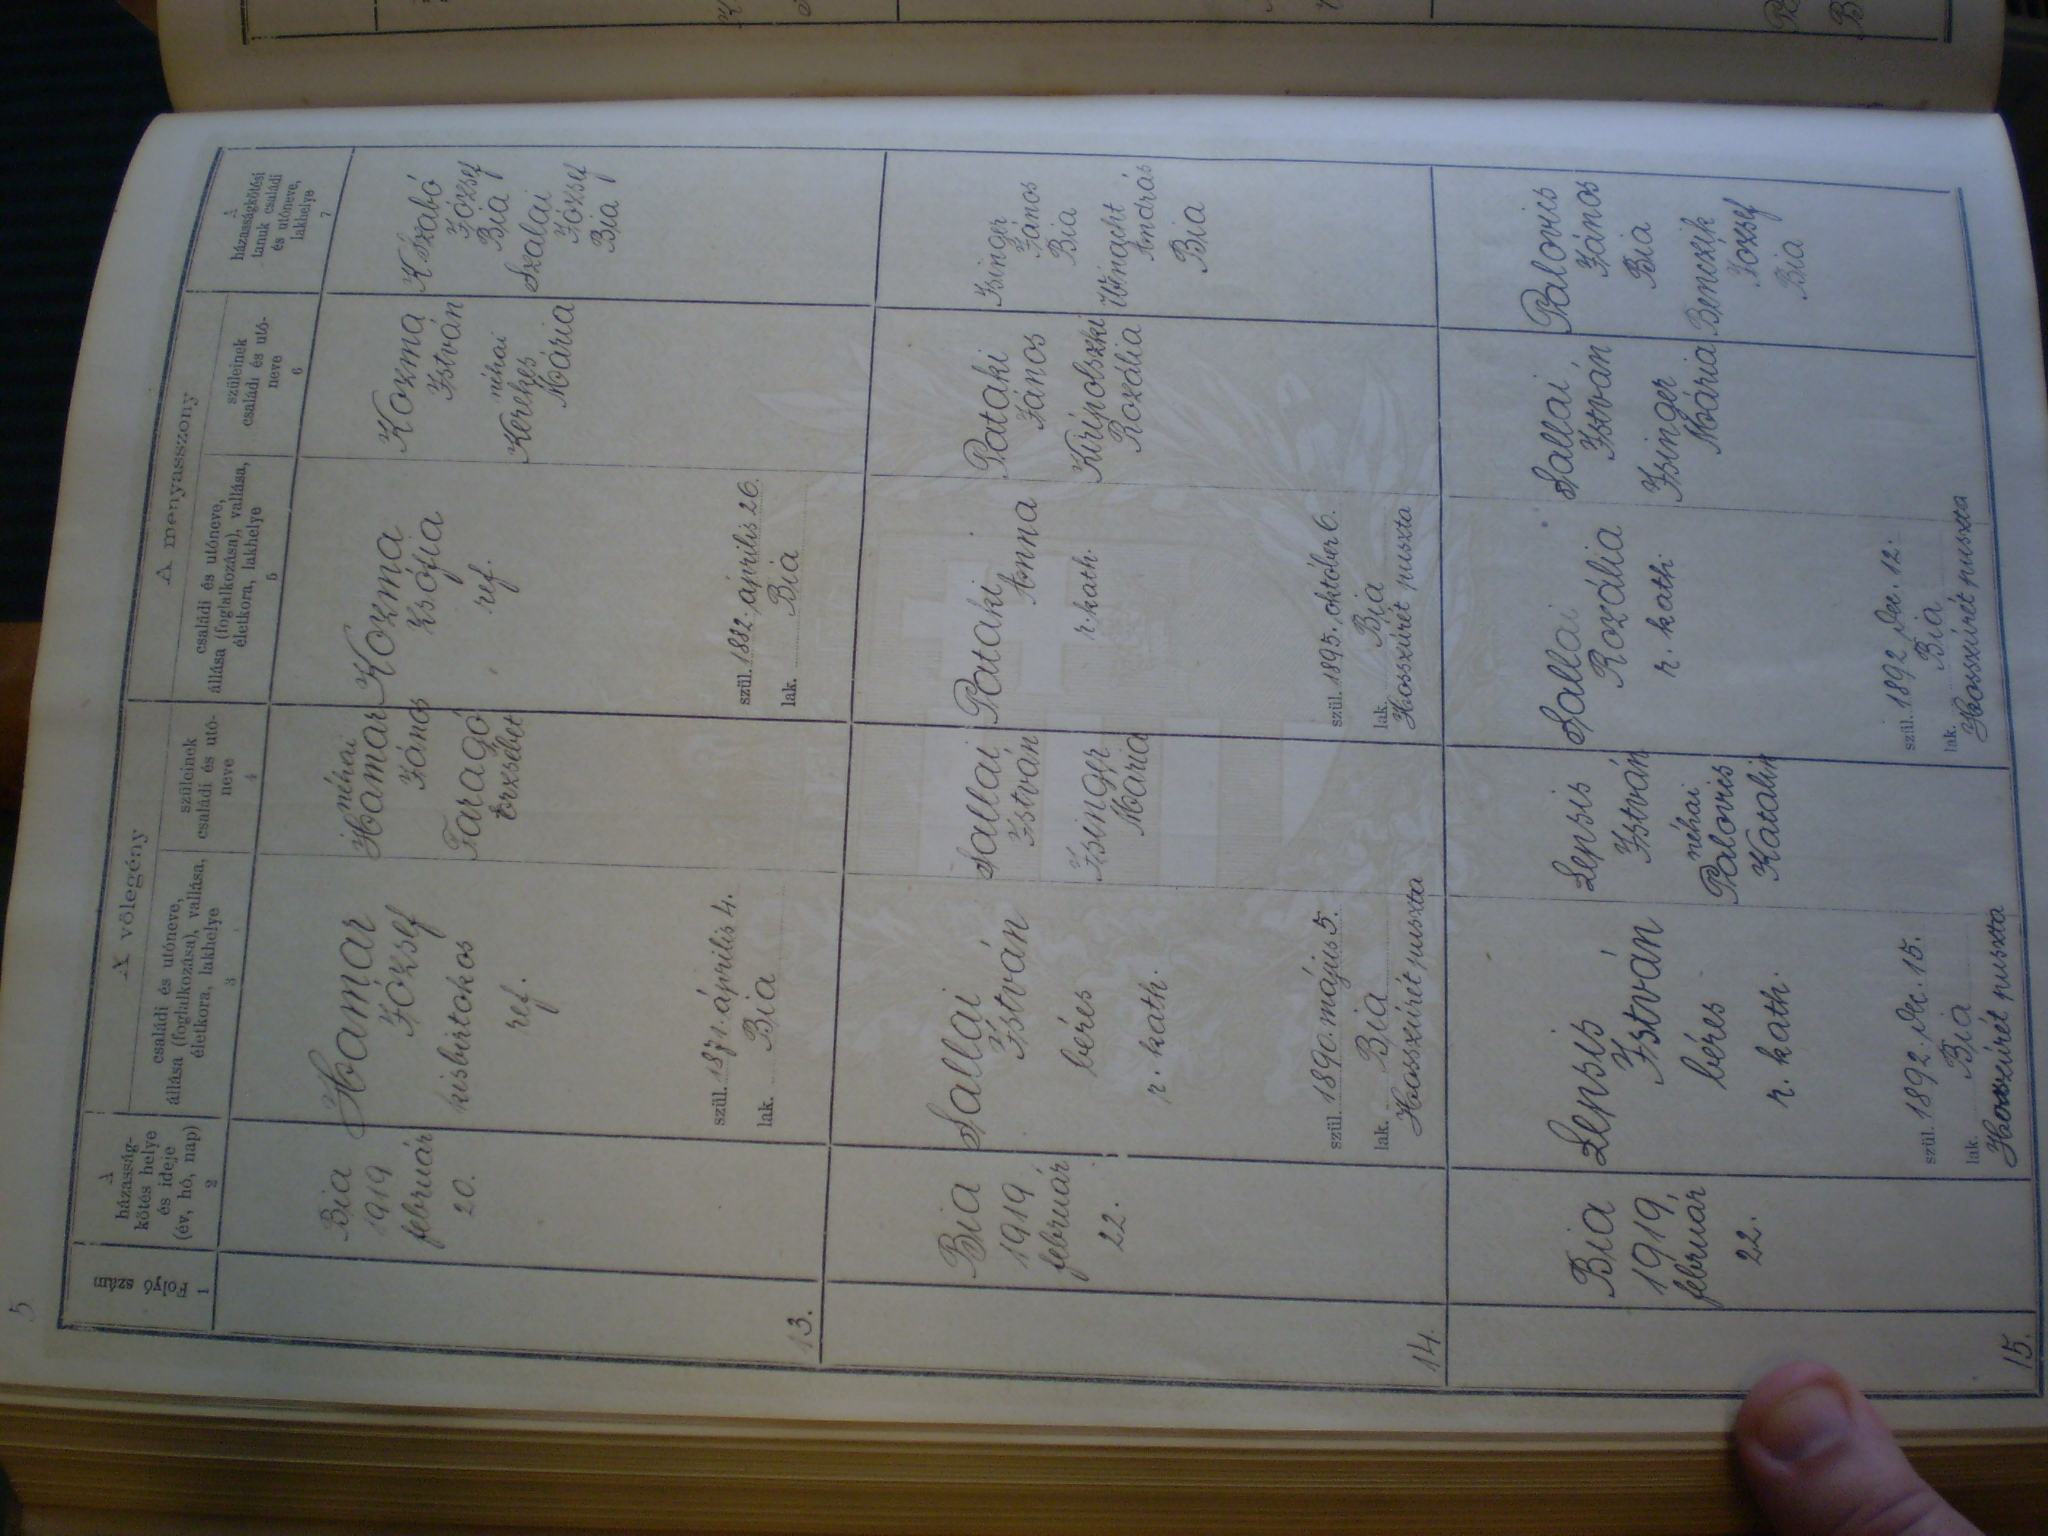 5
Folyó szám
1
A
házasság-
kötés helye
és ideje
(év, hó, nap)
2
A vőlegény
családi és utóneve,
állása (foglalkozása), vallása,
életkora, lakhelye
3
szüleinek
családi és utó-
neve
4
A menyasszony
családi és utóneve,
állása (foglalkozása), vallása,
életkora, lakhelye
5
szüleinek
családi és utó-
neve
6
A
házasságkötési
tanuk családi
és utóneve,
lakhelye
7
13.
Bia
1919
február
20.
Hamar
József
kisbirtokos
ref.
szül. 1871. április 4.
lak. Bia
néhai
Hamar
János
Faragó
Erzsébet
Kozma
Zsófia
ref.
szül. 1882. április 26.
lak. Bia
Kozma
István
néhai
Kerekes
Mária
K Szabó
József
Bia
Szalai
József
Bia
14.
Bia
1919
február
22.
Sallai
István
béres
r. kath.
szül. 1890. május 5.
lak. Bia
Hosszúrét puszta
Sallai
István
Izsinger
Mária
Pataki
Anna
r. kath.
szül. 1895. október 6.
lak. Bia
Hosszúrét puszta
Pataki
János
Kiripolszki
Rozália
Izsinger
János
Bia
András
Bia
15.
Bia
1919
február
22.
Lensis
István
béres
r. kath.
szül. 1892. dec. 15.
lak. Bia
Hosszúrét puszta
Lensis
István
néhai
Palovics
Katalin
Sallai
Rozália
r. kath.
szül. 1892 dec. 12.
lak. Bia
Hosszúrét puszta
Sallai
István
Izsinger
Mária
Palovics
János
Bia
Benczik
József
Bia